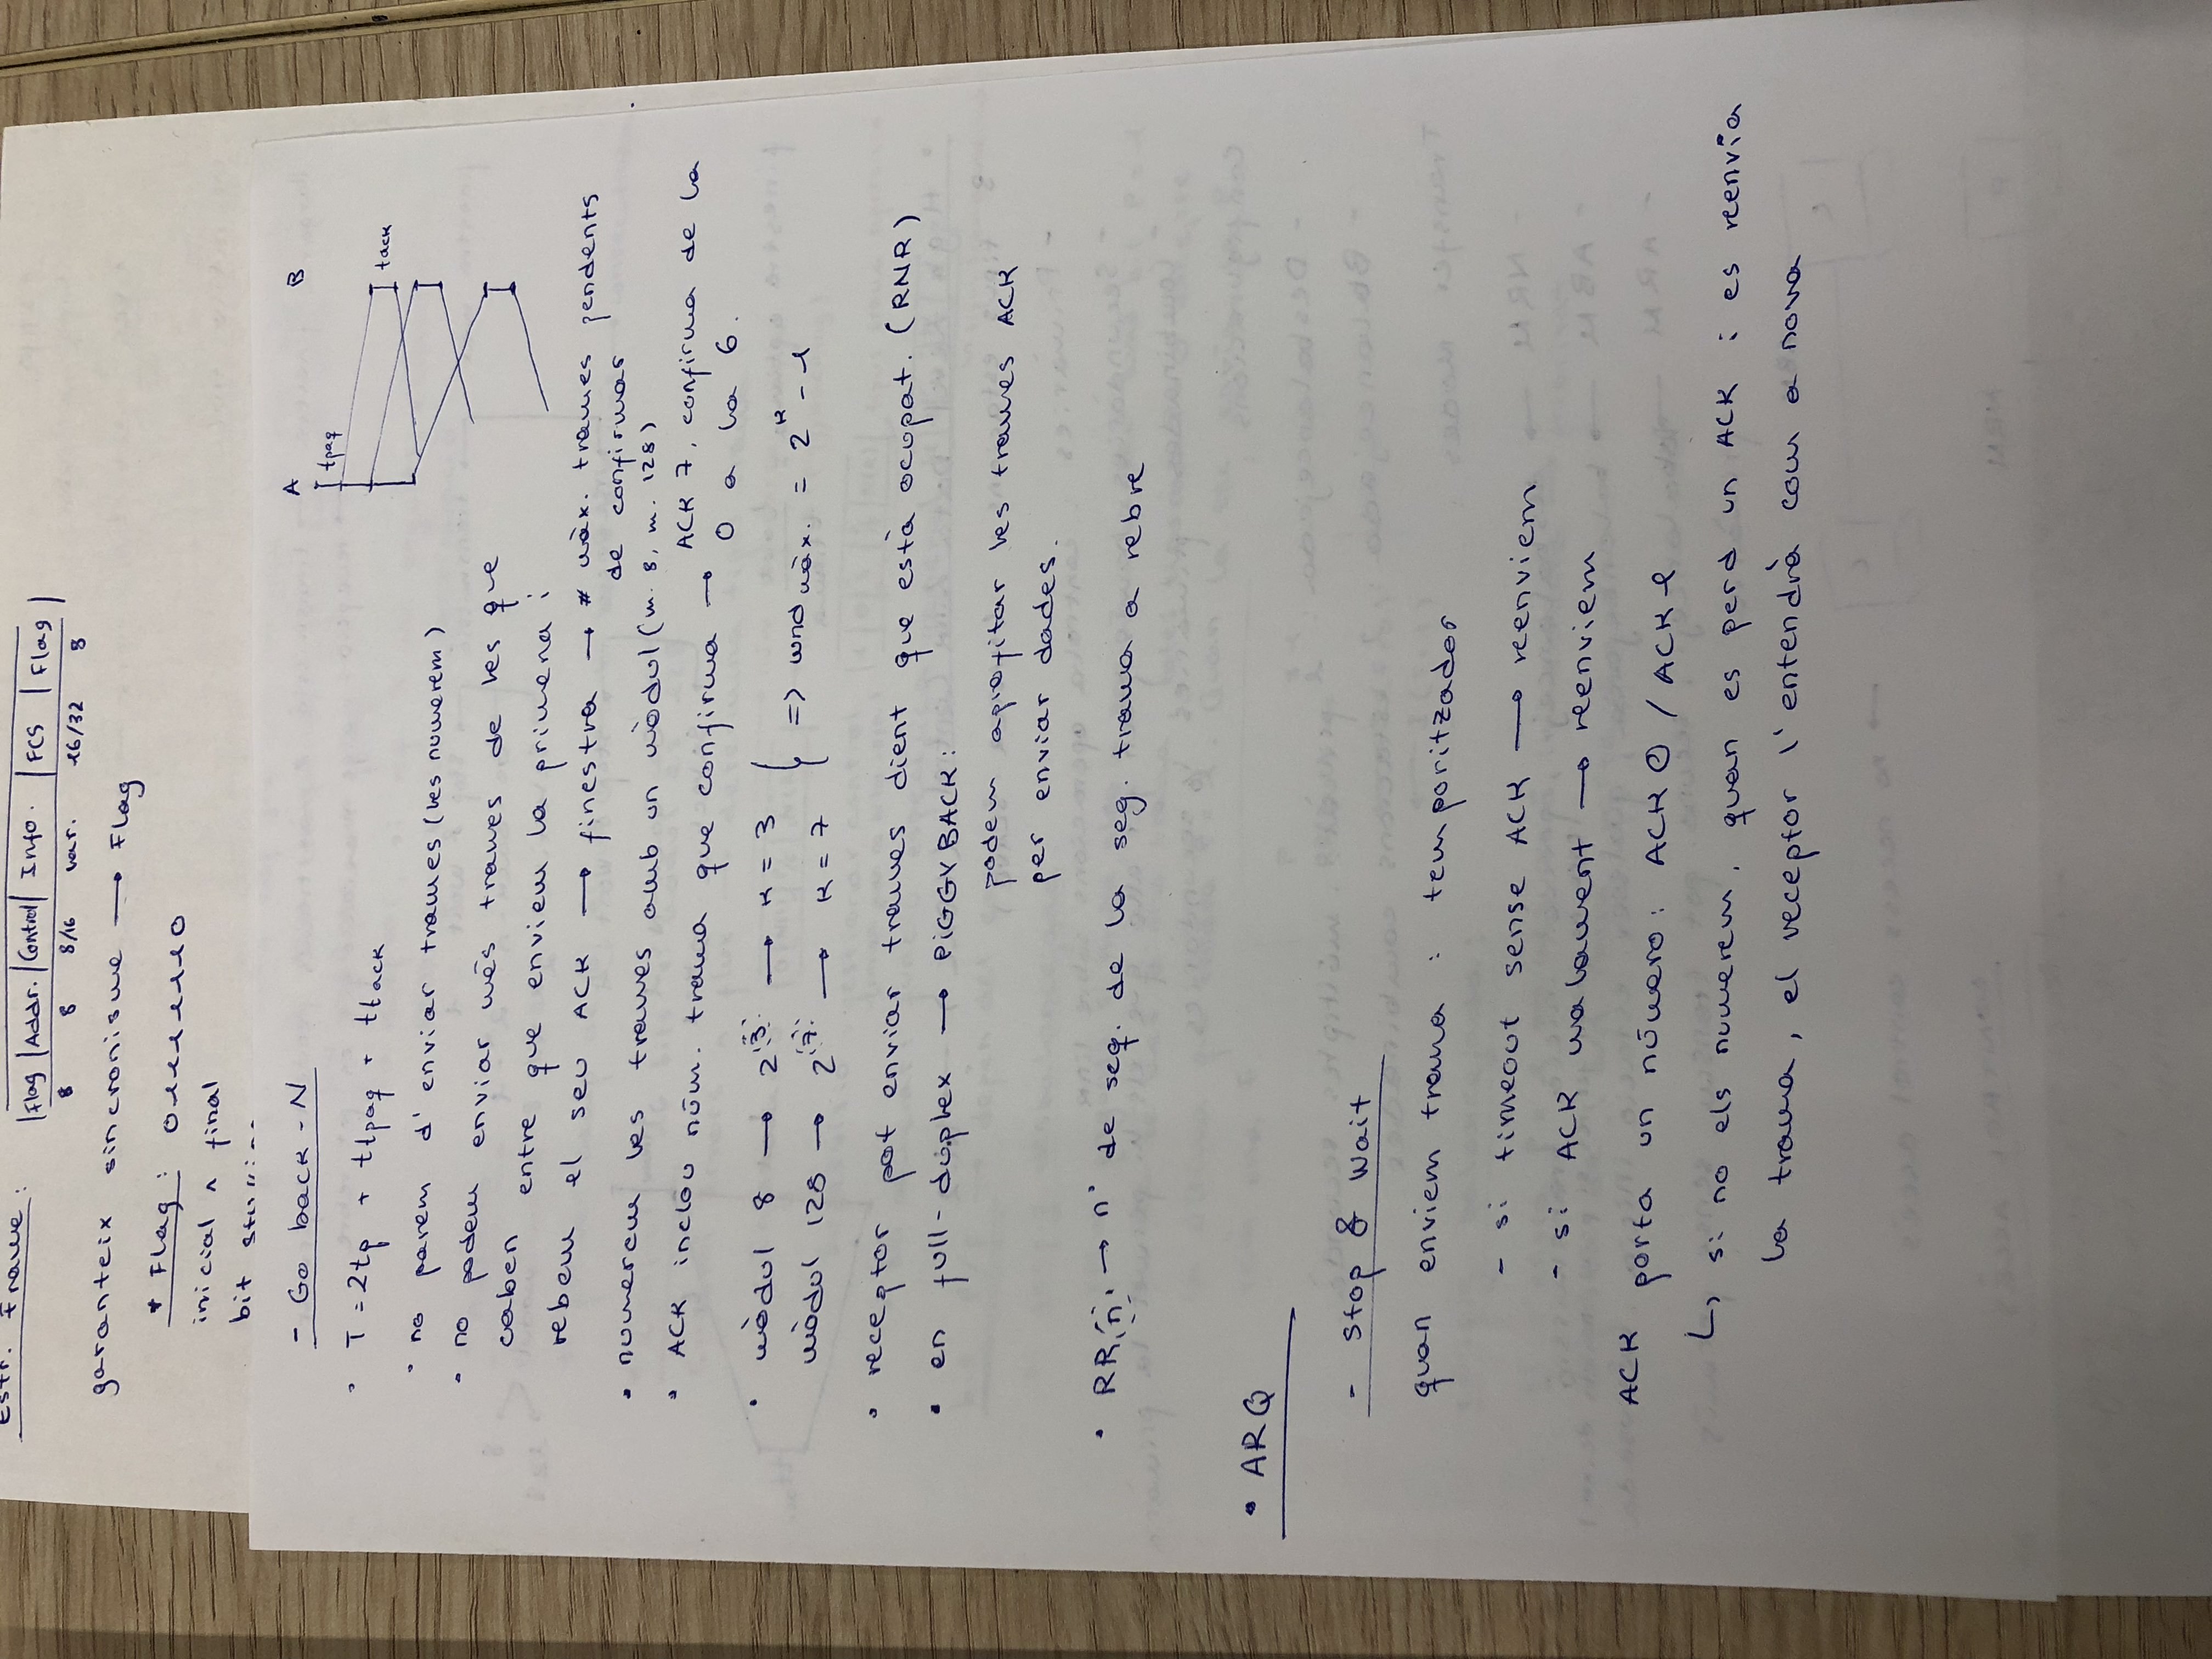 Estr. Frame:
| Flag | Addr. | Control | Info. | FCS | Flag |
8 8 8/16 var. 16/32 8
garanteix sincronisme → Flag
* Flag: 01111110
inicial ^ final
bit
- Go back - N
A B
tpaq
tack
• T = 2tp + ttpaq + ttack
• no parem d'enviar trames (les numerem)
• no podem enviar més trames de les que
caben entre que enviem la primera i
rebem el seu ACK → finestra → # màx. trames pendents
de confirmar
• numerem les trames amb un mòdul (m. 8, m. 128)
• ACK inclou núm. trama que confirma → ACK 7, confirma de la
0 a la 6.
• mòdul 8 → 2^3 → K = 3
mòdul 128 → 2^7 → K = 7
=> wnd màx. = 2^K - 1
• receptor pot enviar trames dient que està ocupat. (RNR)
• en full-dúplex → PIGGYBACK:
podem aprofitar les trames ACK
per enviar dades.
• RR, n → n° de seq. de la seg. trama a rebre
• ARQ
- Stop & Wait
quan enviem trama : temporitzador
- si timeout sense ACK → reenviem
- si ACK malament → reenviem
ACK porta un número: ACK 0 / ACK 1
↳ si no els numerem, quan es perd un ACK i es reenvia
la trama, el receptor l'entendrà com a nova